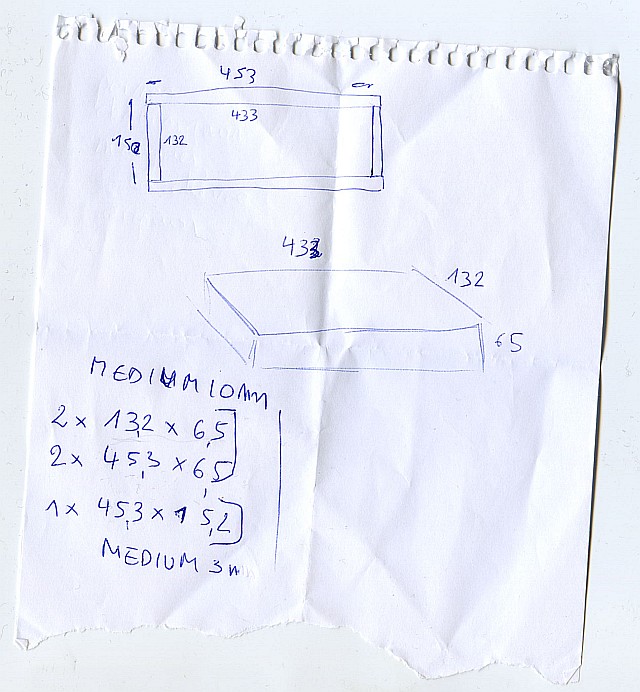 453
433
152
132
433
132
65
MEDIUM 10 mm
2 x 13,2 x 6,5
2 x 45,3 x 6,5
1 x 45,3 x 15,2
MEDIUM 3 m